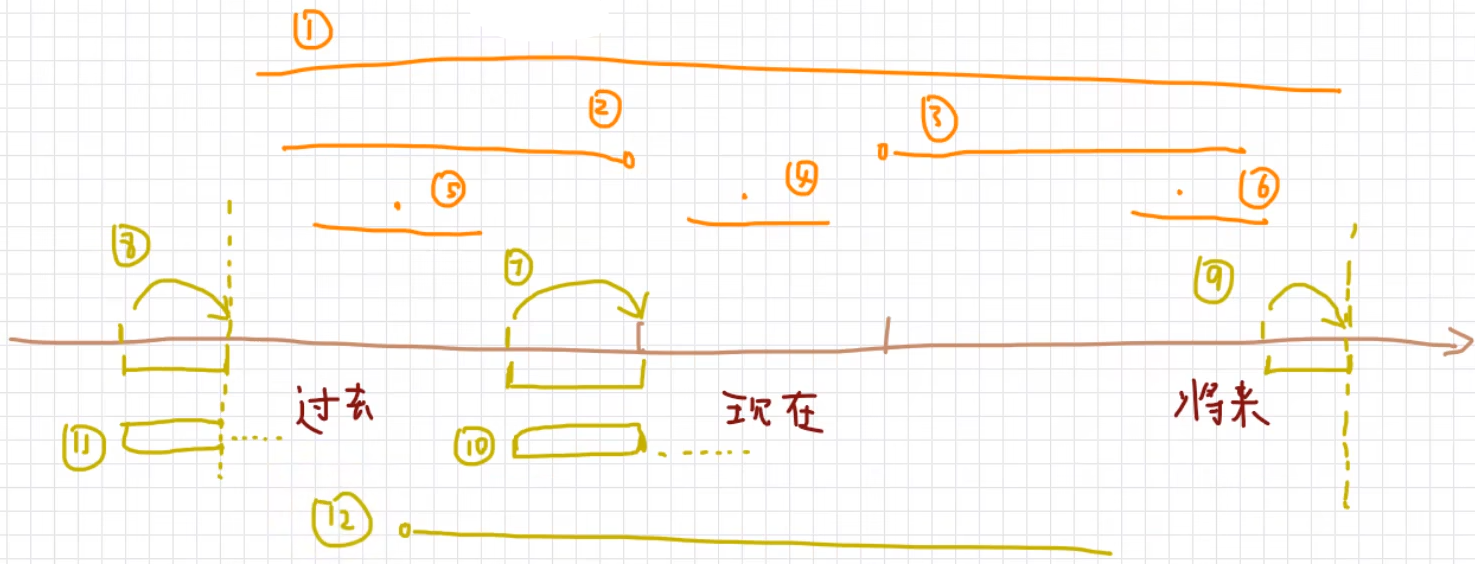 ①
② ③
⑤ ④ ⑥
⑧ ⑦ ⑨
过去 现在 将来
⑪ ⑩
⑫